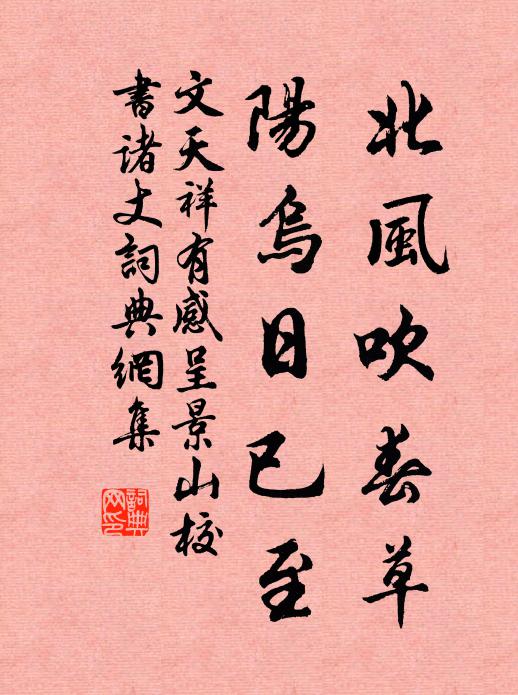 北風吹春草
陽烏日已至
文天祥有感呈景山校
書诸丈詞典網集
詞典
网印